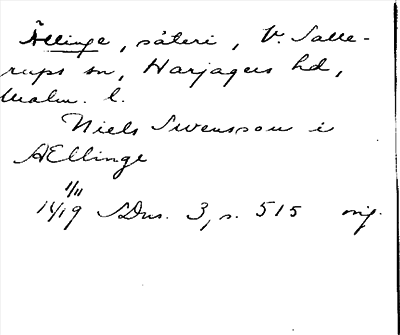 Ällinge, säteri, V. Salle-
rups sn, Harjagers hd,
Malm. l.
Niels Swensson i
AEllinge
1/11
1419 SDns. 3, s. 515 orig.